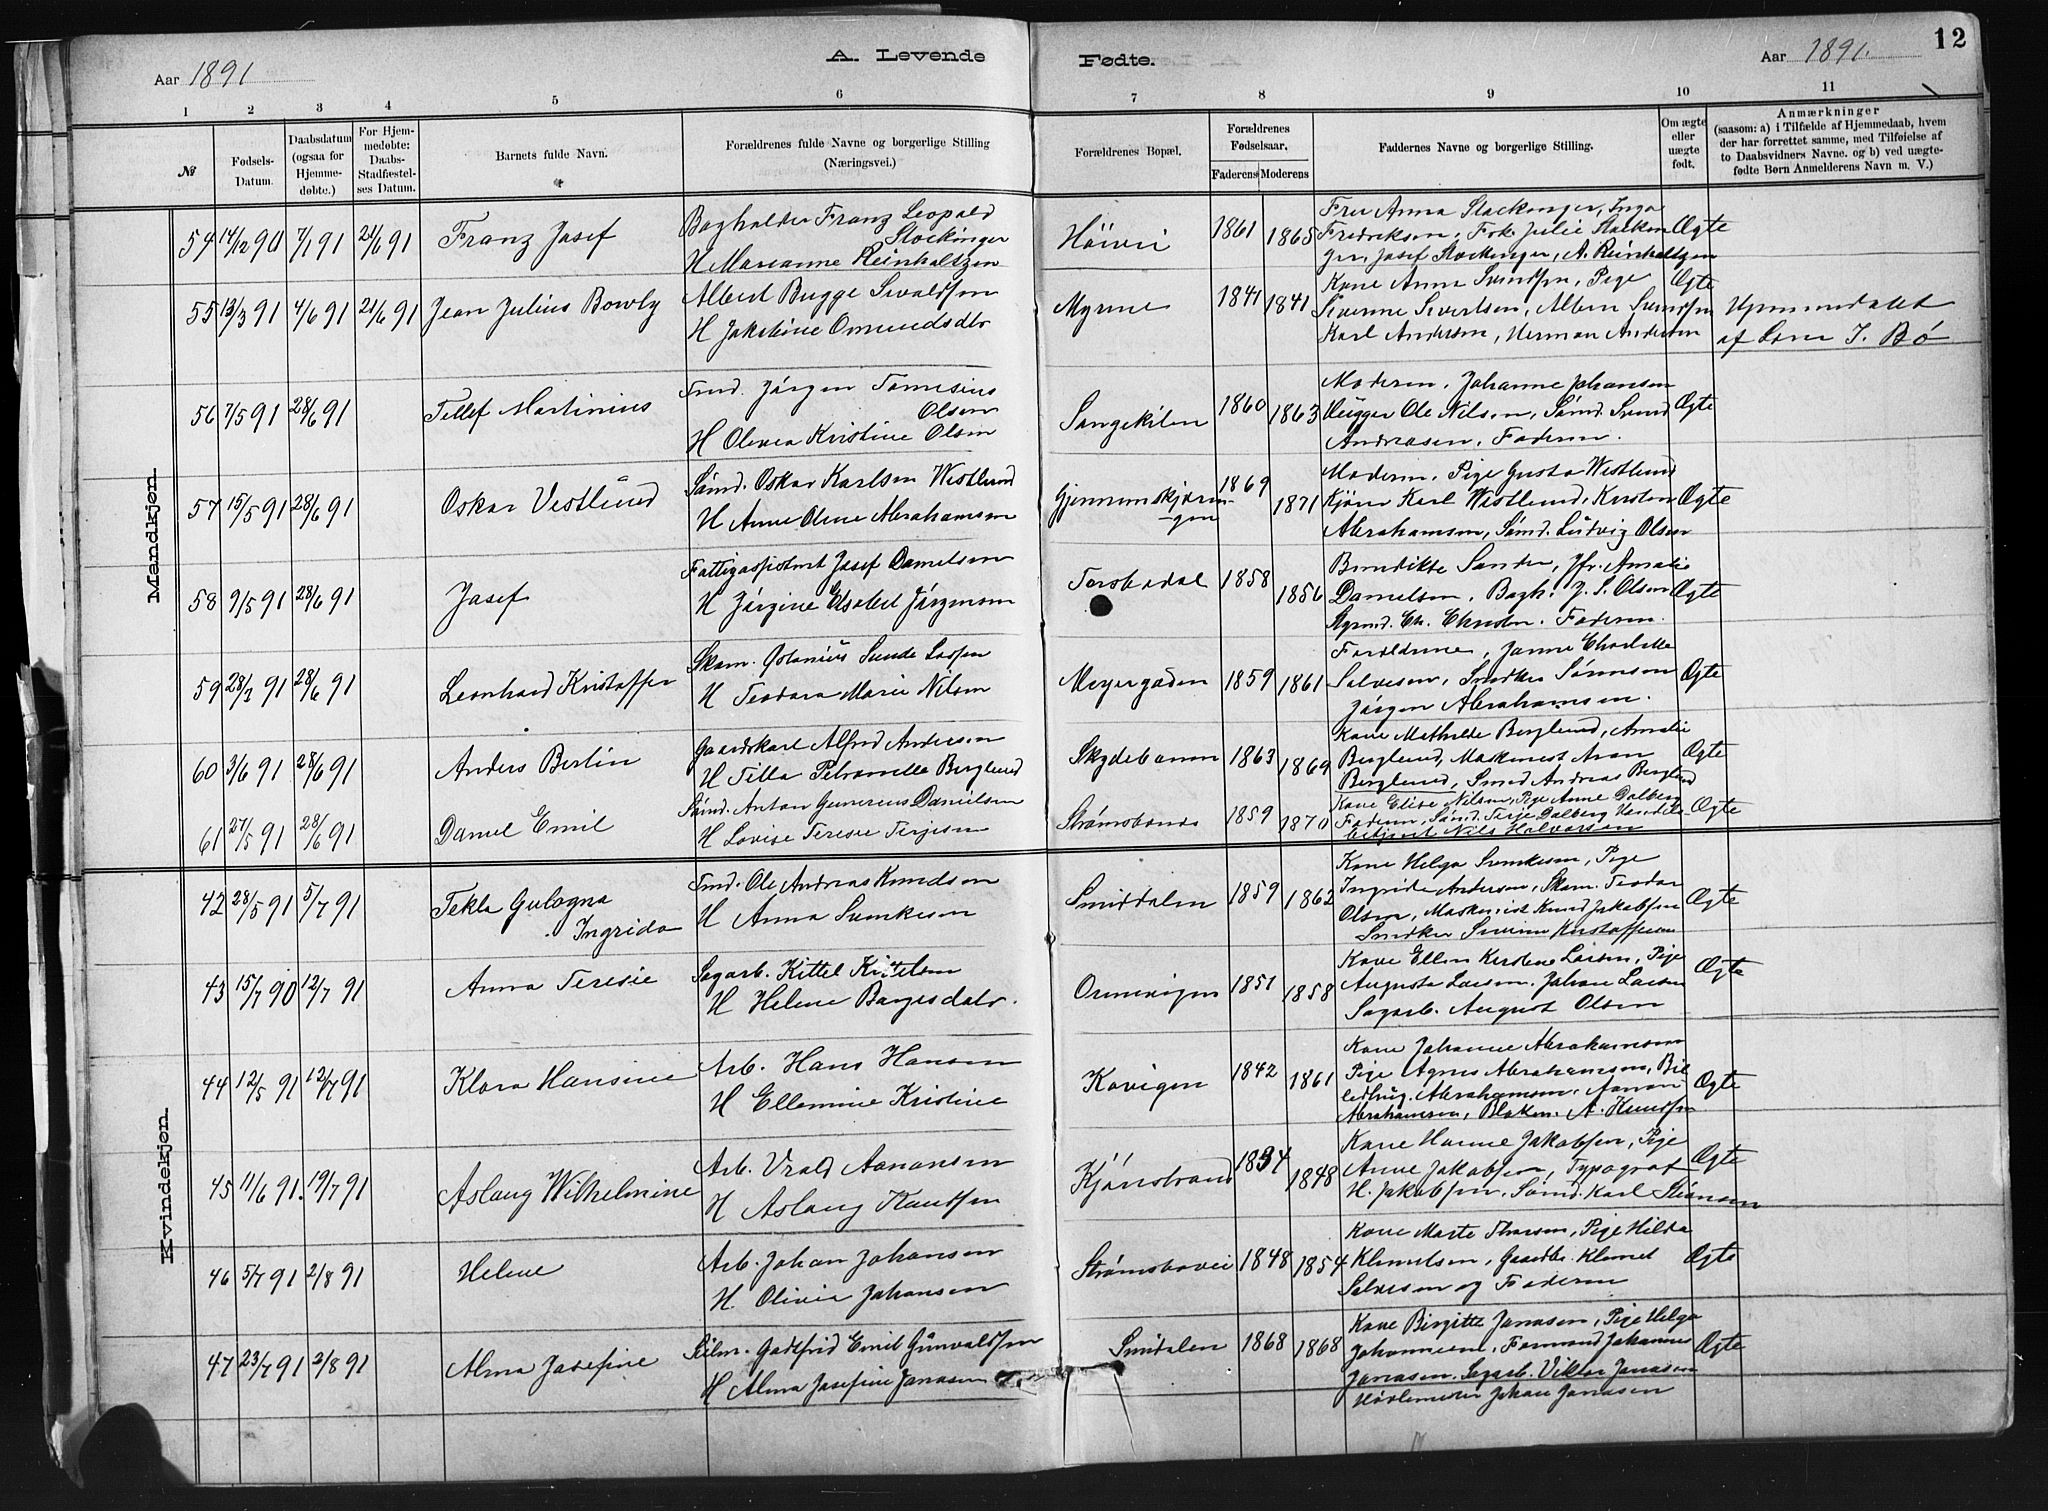 A. Levende
Fødte.
12
Aar 1891
Aar 1891.
1 2 3 4 5 6 7 8 9 10 11
№
Fødsels-Datum.
Daabsdatum (ogsaa for Hjemmedøbte.)
For Hjemmedøbte: Daabs-Stadfæstelses Datum.
Barnets fulde Navn.
Forældrenes fulde Navne og borgerlige Stilling (Næringsvei.)
Forældrenes Bopæl.
Forældrenes Fødselsaar.
Faderens Moderens
Faddernes Navne og borgerlige Stilling.
Om ægte eller uægte født.
Anmærkninger
(saasom: a) i Tilfælde af Hjemmedaab, hvem der har forrettet samme, med Tilføielse af to Daabsvidners Navne. og b) ved uægte-fødte Børn Anmelderens Navn m. V.)
Mandkjøn.
54 14/12 90 7/1 91 21/6 91 Franz Josef
Bogholder Franz Leopold
Stockinger
H Marianne Reinholtzen
Höivei 1861 1865
Fru Anna Stockinger, Inga
Fredriksen, Frk. Julie Stockin
ger, Josef Stockinger, A. Reinholtzen
Ægte
55 13/3 91 4/6 91 21/6 91 Jean Julius Bowly
Albert Bugge Sivaldsen
H Jakobine Omundsdtr
Myrene 1841 1841
Kone Anna Svendsen, Pige
Siverine Sivertsen, Albert Svendsen
Karl Andersen, Herman Andersen
Ægte
Hjemmedøbt
af Lars I. Bø
56 7/5 91 28/6 91 Tellef Martinius
Tmd. Jörgen Tomesius
Olsen
H Olevia Kristine Olsen
Songekilen 1860 1863
Moderen, Johanne Johansen
Brygger Ole Nilsen, Sömd. Svend
Andreasen, Faderen.
Ægte
57 15/5 91 28/6 91 Oskar Vestlund
Sömd. Oskar Karlsen Westlund
H Anne Oline Abrahamsen
1869 1871
Moderen, Pige Gusta Westlund
Karl Westlund, Kristen
Abrahamsen, Sömd. Ludvig Olsen
Ægte
58 9/5 91 28/6 91 Josef
Josef Danielsen
H Jörgine Elisabet Jörgensen
Torsbudal 1858 1856
Benedikte Sander, Jfr. Amalie
Danielsen, Bogh. J. S. Olsen
Styrmd. Ch. Faderen.
Ægte
59 28/3 91 28/6 91 Leonhard Kristoffer
Skom. Sunde Larsen
H Teodora Marie Nilsen
Meyergaden 1859 1861
Forældrene, Janne Charlotte
Salvesen, Snedker Sörensen
Jörgen Abrahamsen.
Ægte
60 3/6 91 28/6 91 Anders Berlin
Gaardskarl Alfred Andersen
H Tilla Petronelle Berglund
Skydebanen 1863 1869
Kone Mathilde Berglund, Amalie
Berglund, Maskinist Aron
Berglund, Smed Andreas Berglund
Ægte
61 27/5 91 28/6 91 Daniel Emil
Sömd. Anton Gunerius Danielsen
H Lovise Teresie Terjesen
Strömsbones 1859 1870
Kone Elise Nilsen, Pige Anne Dalberg
Faderen, Sömd. Terje Dalberg Handels
betjent Nils Halvorsen
Ægte
Kvindekjøn.
42 28/5 91 5/7 91 Tekla Gulogna
Ingrida
Tmd. Ole Andreas Knudsen
H Anna Svenkesen
Smiddalen 1859 1862
Kone Helga Svenkesen, Pige
Ingride Andersen, Skom. Teodor
Olsen, Maskinist Knud Jakobsen
Snedker Kristoffersen
Ægte
43 15/7 90 12/7 91 Anna Teresie
Sagarb. Kittel Kittelsen
H Helene Börgesdatr.
Ormevigen 1851 1858
Kone Ellen Kirstine Larsen, Pige
Augusta Larsen, Johan Larsen
Sagarb. August Olsen
Ægte
44 12/5 91 12/7 91 Klara Hansine
Arb. Hans Hansen
H Ellemine Kristine
Kavigen 1842 1861
Kone Johanne Abrahamsen
Pige Agnes Abrahamsen, Bil
ledhug. Abrahamsen, Aanon
Abrahamsen, Blokm. A. Knudsen
Ægte
45 11/6 91. 19/7 91 Aslaug Wilhelmine
Arb. Vrald Aanonsen
H Aslaug Knudsen
Kjönstrand 1834 1848
Kone Hanne Jakobsen, Pige
Anne Jakobsen, Typograf
H. Jakobsen, Sömd. Karl
Ægte
46 5/7 91 2/8 91 Helene
Arb. Johan Johansen
H. Olivie Johansen
Strömsbovei 1848 1854
Kone Marte Pige Hilda
Klemetsen, Gaardbr. Klemet
Salvesen og Faderen
Ægte
47 23/7 91 2/8 91 Alma Josefine
Godtfrid Emil Gunvaldsen
H Alma Josefine Jonasen
Smidalen 1868 1868
Kone Birgitte Jonasen, Pige Helga
Johannesen, Formand Johannes
Jonasen, Sagarb. Viktor Jonasen
Johan Jonasen
Ægte